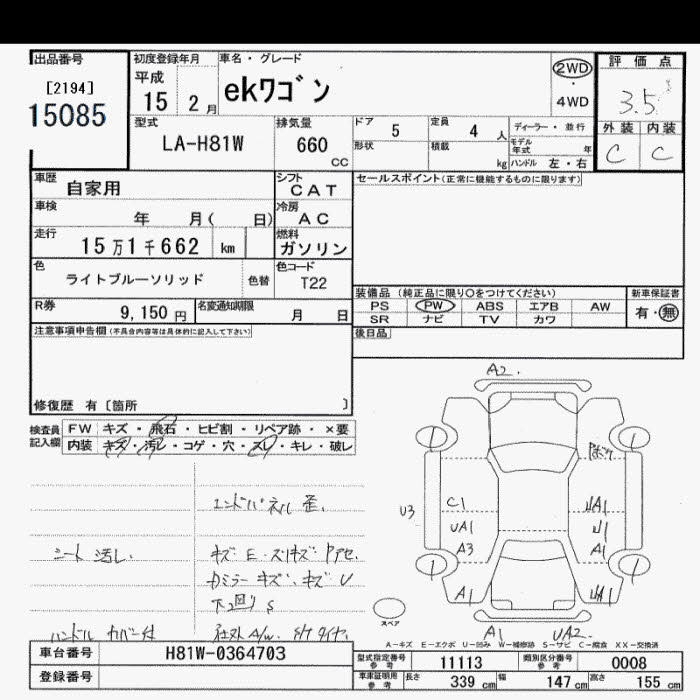 出品番号
[2194]
15085
初度登録年月
平成
15 2月
車名・グレード
ekワゴン
2WD
・
4WD
評価点
3.5
外装 内装
C C
型式
LA-H81W
排気量
660
CC
ドア 5
形状
定員 4 人
積載 kg
ディーラー・並行
モデル年式 年
ハンドル 左・右
車歴 自家用
シフト CAT
セールスポイント(正常に機能するものに限ります)
車検 年 月( 日)
冷房 AC
走行 15万1千662 km
燃料 ガソリン
色 ライトブルーソリッド 色替
色コード T22
装備品 (純正品に限り○をつけてください)
PS PW ABS エアB AW
SR ナビ TV カワ
新車保証書
有・無
R券 9,150円
名変通知期限 月 日
後日品
注意事項申告欄(不具合内容等は具体的に記入して下さい)
修復歴 有〔箇所 〕
検査員記入欄
FW キズ・飛石・ヒビ割・リペア跡・×要
内装 キズ・汚レ・コゲ・穴・スレ・キレ・破レ
エンドパネル 歪.
シート 汚し.
キズ E・スリキズ
ミラー キズ、キズ U
下回り S
ハンドル カバー付
社外 A/W.
A2
U3
C1
UA1
A3
A1
A1
UA1
A1
UA2
スペア
A-キズ E-エクボ U-凹み W-補修跡 S-サビ C-腐食 XX-交換済
車台番号 H81W-0364703
登録番号
型式指定番号 参考 11113
類別区分番号 参考 0008
車車証明用 参考 長さ 339 cm 幅 147 cm 高さ 155 cm